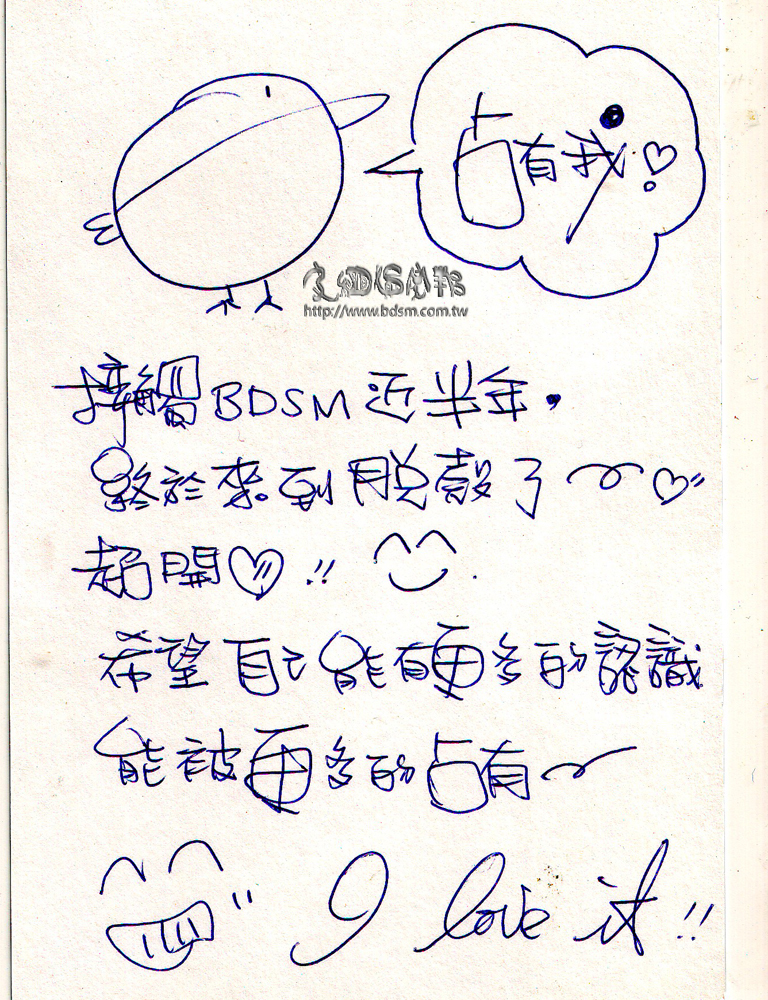 占有我!♡
http://www.bdsm.com.tw
接觸BDSM近半年,
終於來到脫殼了～♡"
超開♡!!
希望自己能有更多的認識
能被更多的占有～
I love it!!